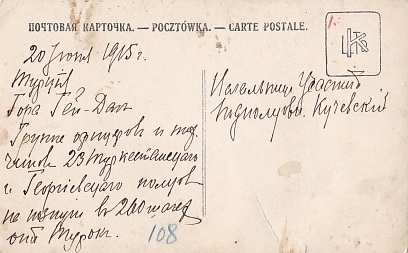 ПОЧТОВАЯ КАРТОЧКА. — POCZTÓWKA. — CARTE POSTALE.
20 Іюня 1915 г.
Турція
Гора Гей-Даг
Группа офицеров и
чинов 23 Туркестанскаго
и Георгіевскаго полков
на позиции в 200 шагах
от Турок.
108
Начальник Участка
подполковн. Кучевскій